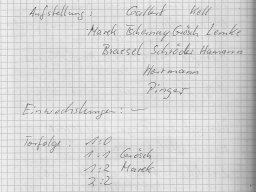 Aufstellung: Gallert Well
Marek Tscherney Grösch Lemke
Braesel Schröder Hamann
Herrmann
Pinger
Einwechslungen: –
Torfolge: 1:0
1:1 Grösch
1:2 Marek
2:2